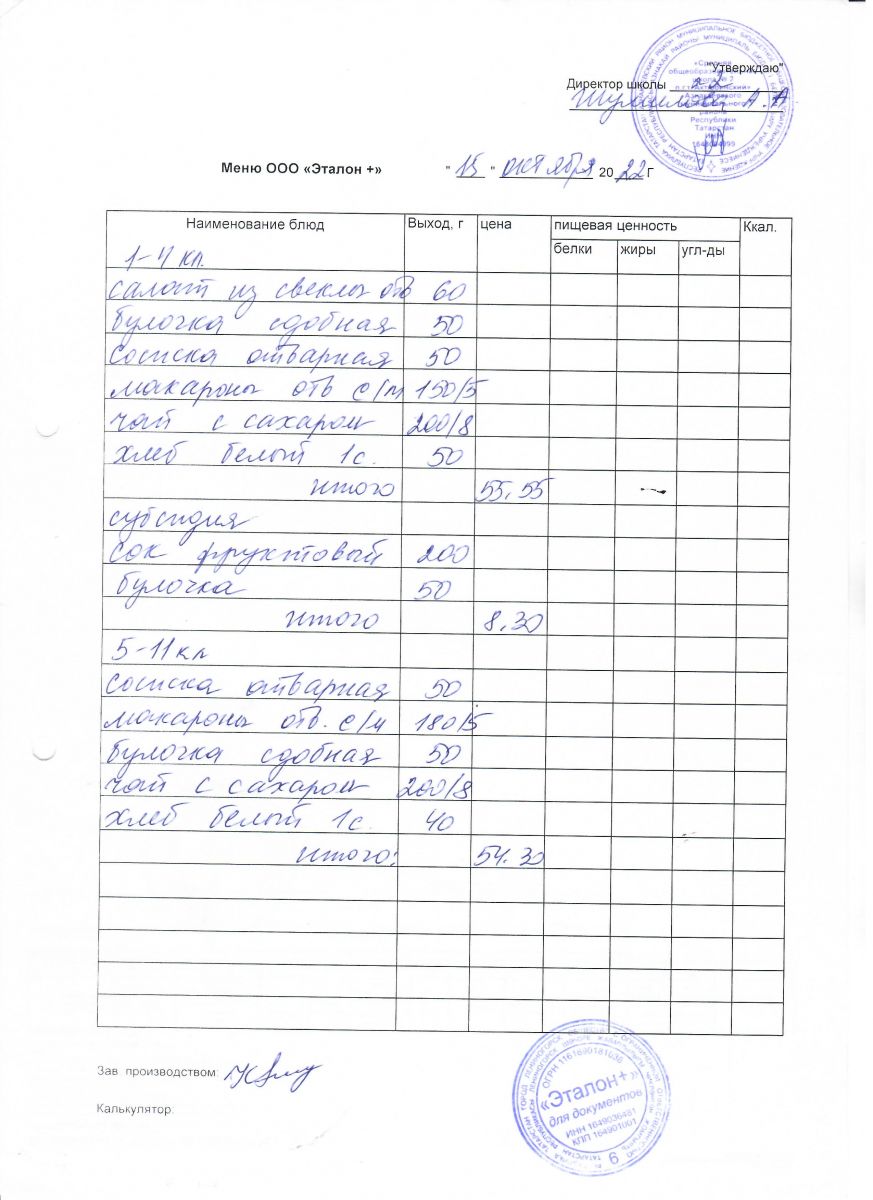 "Утверждаю"
Директор школы № 2
А. А
«Средняя
общеобразовательная
школа № 2
п.г.т. Актюбинский»
Азнакаевского
муниципального
района
Республики
Татарстан
Меню ООО «Эталон +» " 15 " октября 20 22 г
Наименование блюд Выход, г цена пищевая ценность Ккал.
белки жиры угл-ды
1-4 кл.
салат из свеклы отв 60
булочка сдобная 50
сосиска отварная 50
макароны отв с/м 150/5
чай с сахаром 200/8
хлеб белый 1с. 50
итого 55,55
субсидия
сок фруктовый 200
булочка 50
итого 8,30
5-11 кл
сосиска отварная 50
макароны отв. с/м 180/5
булочка сдобная 50
чай с сахаром 200/8
хлеб белый 1с. 40
итого: 54.30
Зав производством:
Калькулятор:
ОГРН 1161690181036
«Эталон+»
для документов
ИНН 1649036461
КПП 164901001
9